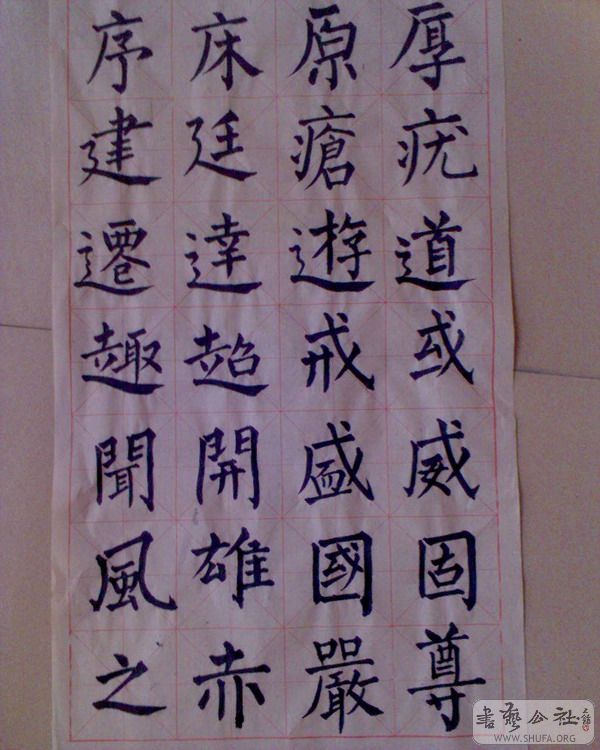 厚疣道或威固尊
原瘡遊戒盛國嚴
床廷達超開雄赤
序建遷趣聞風之
書藝公社
WWW.SHUFA.ORG